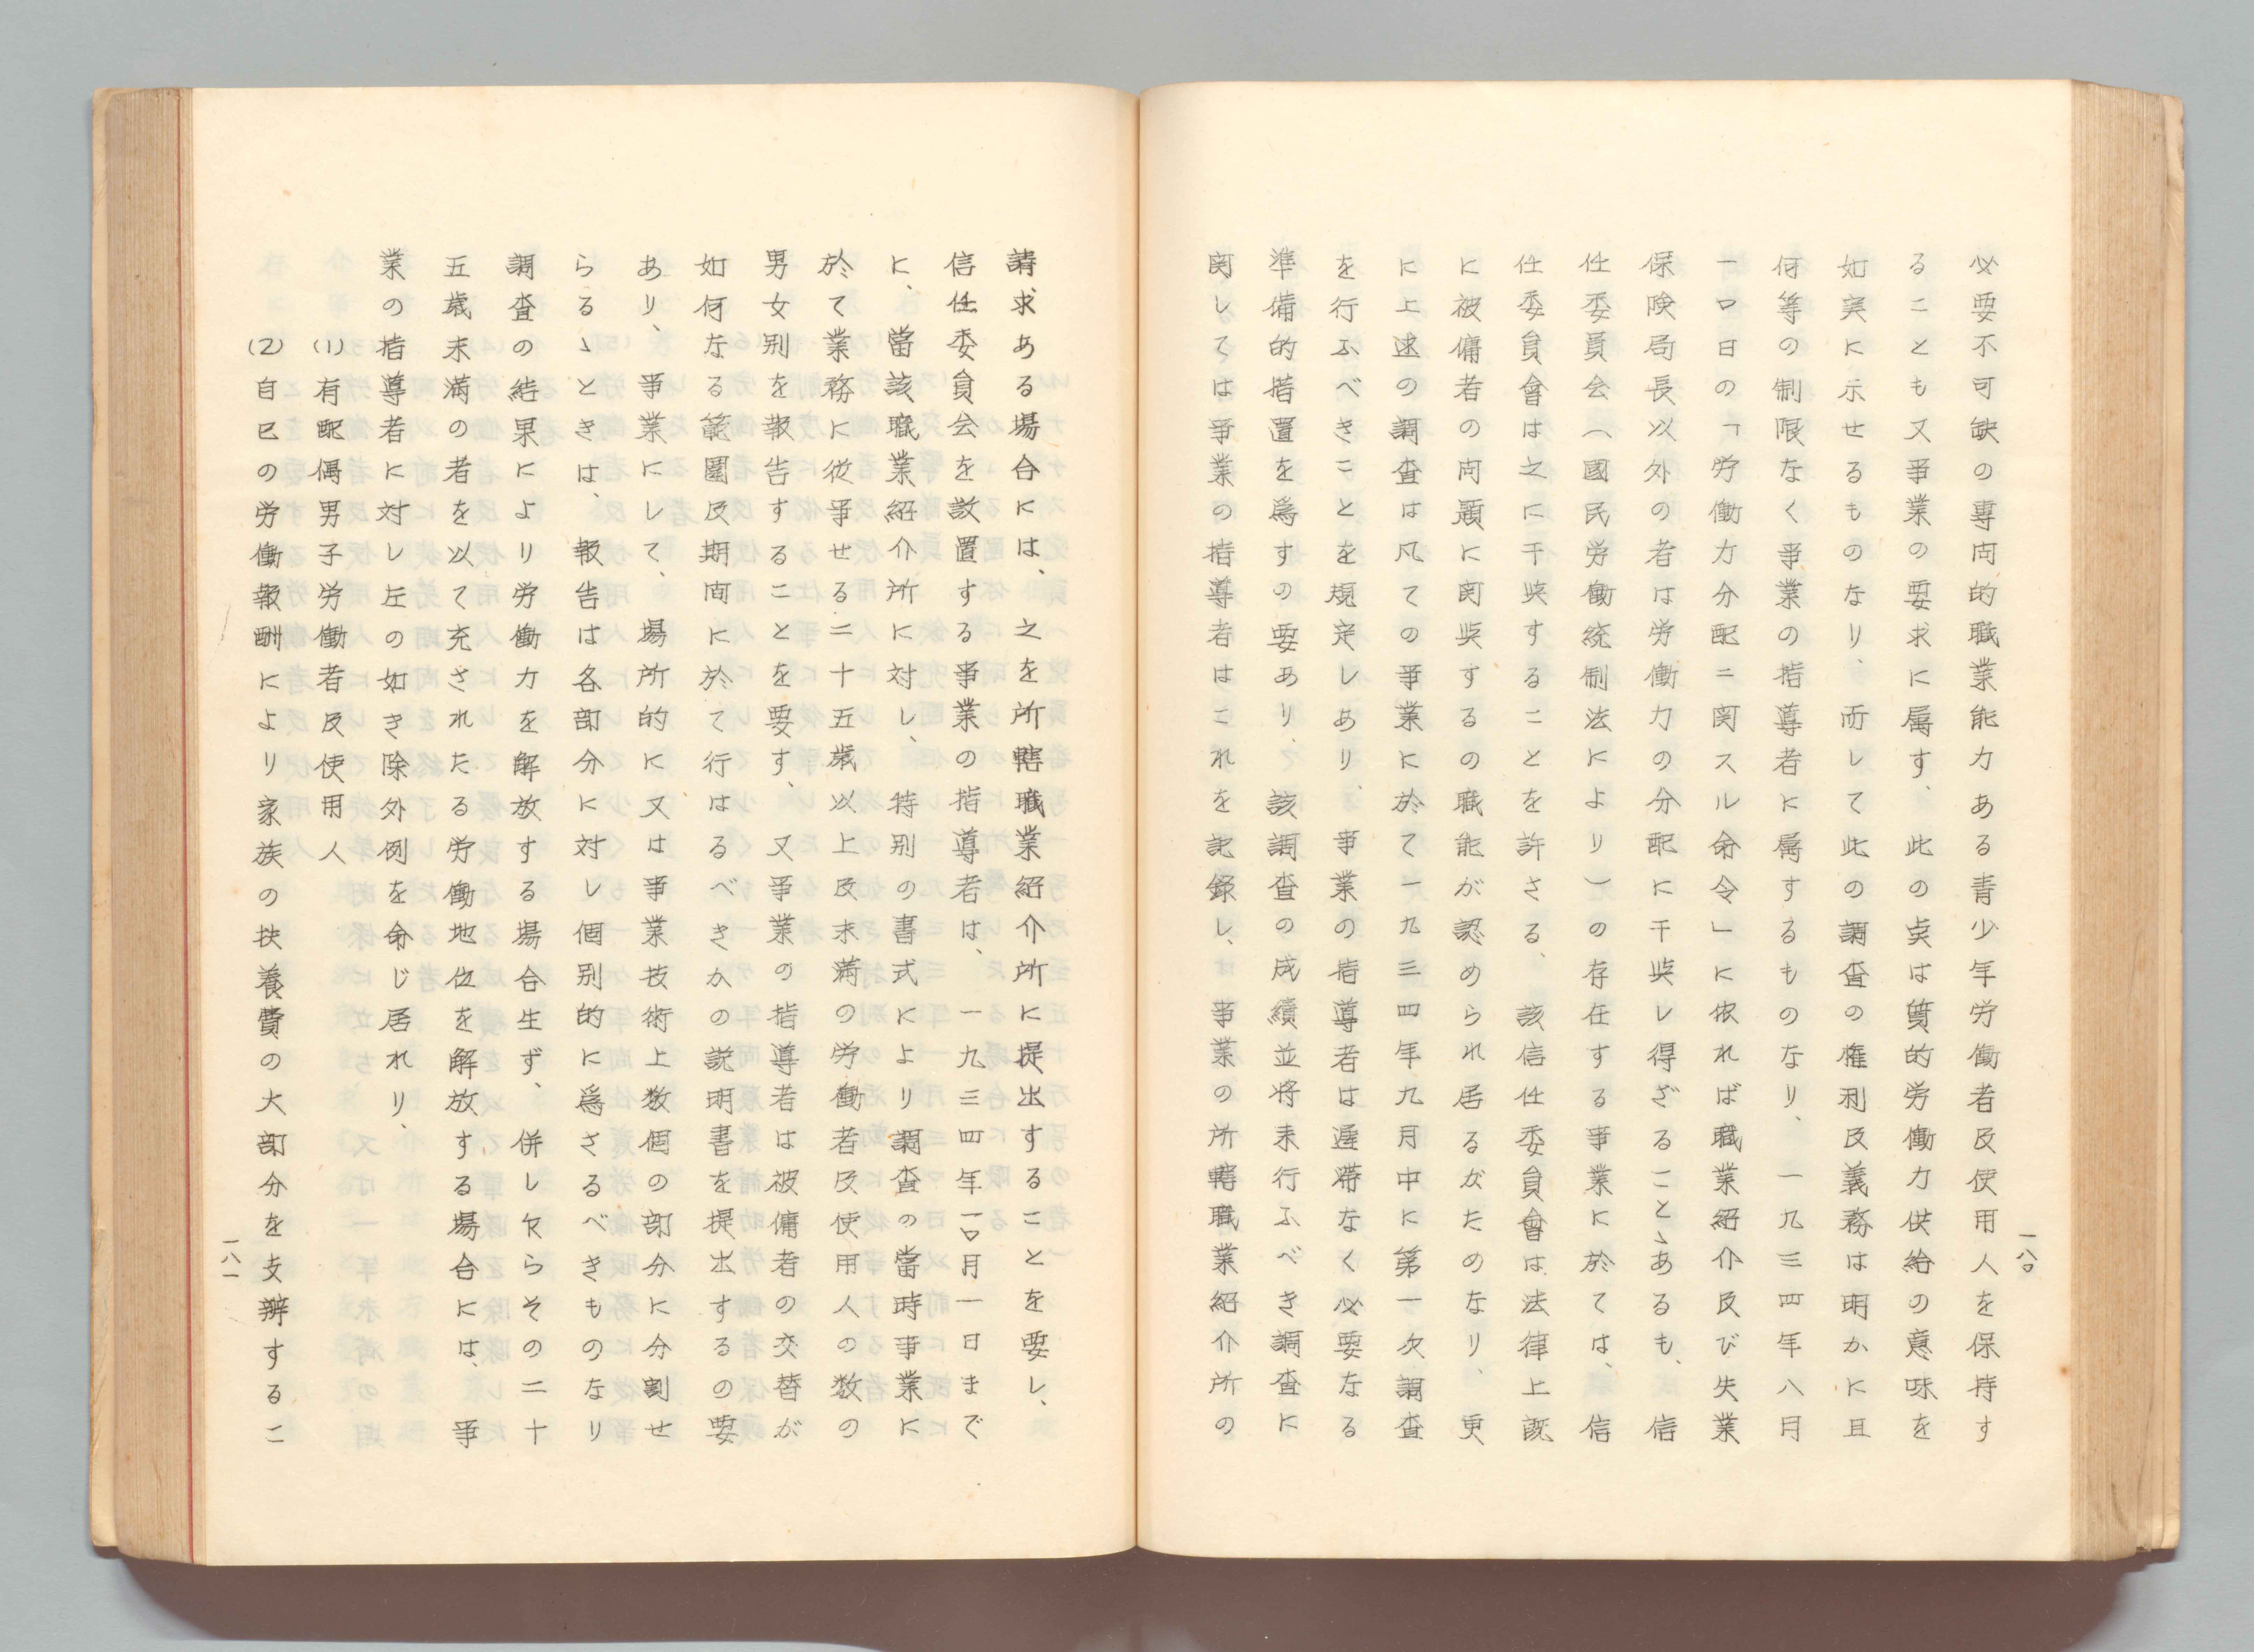 必要不可缺の專门的職業能力ある青少年労働者及使用人を保持す
ることも又事業の要求に属す、此の点は質的労働力供給の意味を
如実に示せるものなり、而して此の調査の権利及義務は明かに且
何等の制限なく事業の指導者に属するものなり、一九三四年八月
一〇日の「労働力分配ニ関スル命令」に依れば職業紹介及び失業
保険局長以外の者は労働力の分配に干与し得ざることゝあるも、信
任委員会（國民労働統制法により）の存在する事業に於ては、信
任委員會は之に干与することを許さる、該信任委員會は法律上既
に被傭者の问題に関与するの職能が認められ居るがためなり、更
に上述の調査は凡ての事業に於て一九三四年九月中に第一次調査
を行ふべきことを規定しあり、事業の指導者は遅滞なく必要なる
準備的措置を爲すの要あり、該調査の成績並将来行ふべき調査に
関しては事業の指導者はこれを記録し、事業の所轄職業紹介所の
一八〇
請求ある場合には、之を所轄職業紹介所に提出することを要し、
信任委員会を設置する事業の指導者は、一九三四年一〇月一日まで
に、當該職業紹介所に対し、特別の書式により調査の當時事業に
於て業務に従事せる二十五歳以上及未満の労働者及使用人の数の
男女別を報告することを要す、又事業の指導者は被傭者の交替が
如何なる範圍及期间に於て行はるべきかの説明書を提出するの要
あり、事業にして、場所的に又は事業技術上数個の部分に分割せ
らるゝときは、報告は各部分に対し個別的に爲さるべきものなり
調査の結果により労働力を解放する場合生ず、併し欠らその二十
五歳未満の者を以て充されたる労働地位を解放する場合には、事
業の指導者に対し左の如き除外例を命じ居れり、
(1)有配偶男子労働者及使用人
(2)自己の労働報酬により家族の扶養費の大部分を支辨するこ
一八一